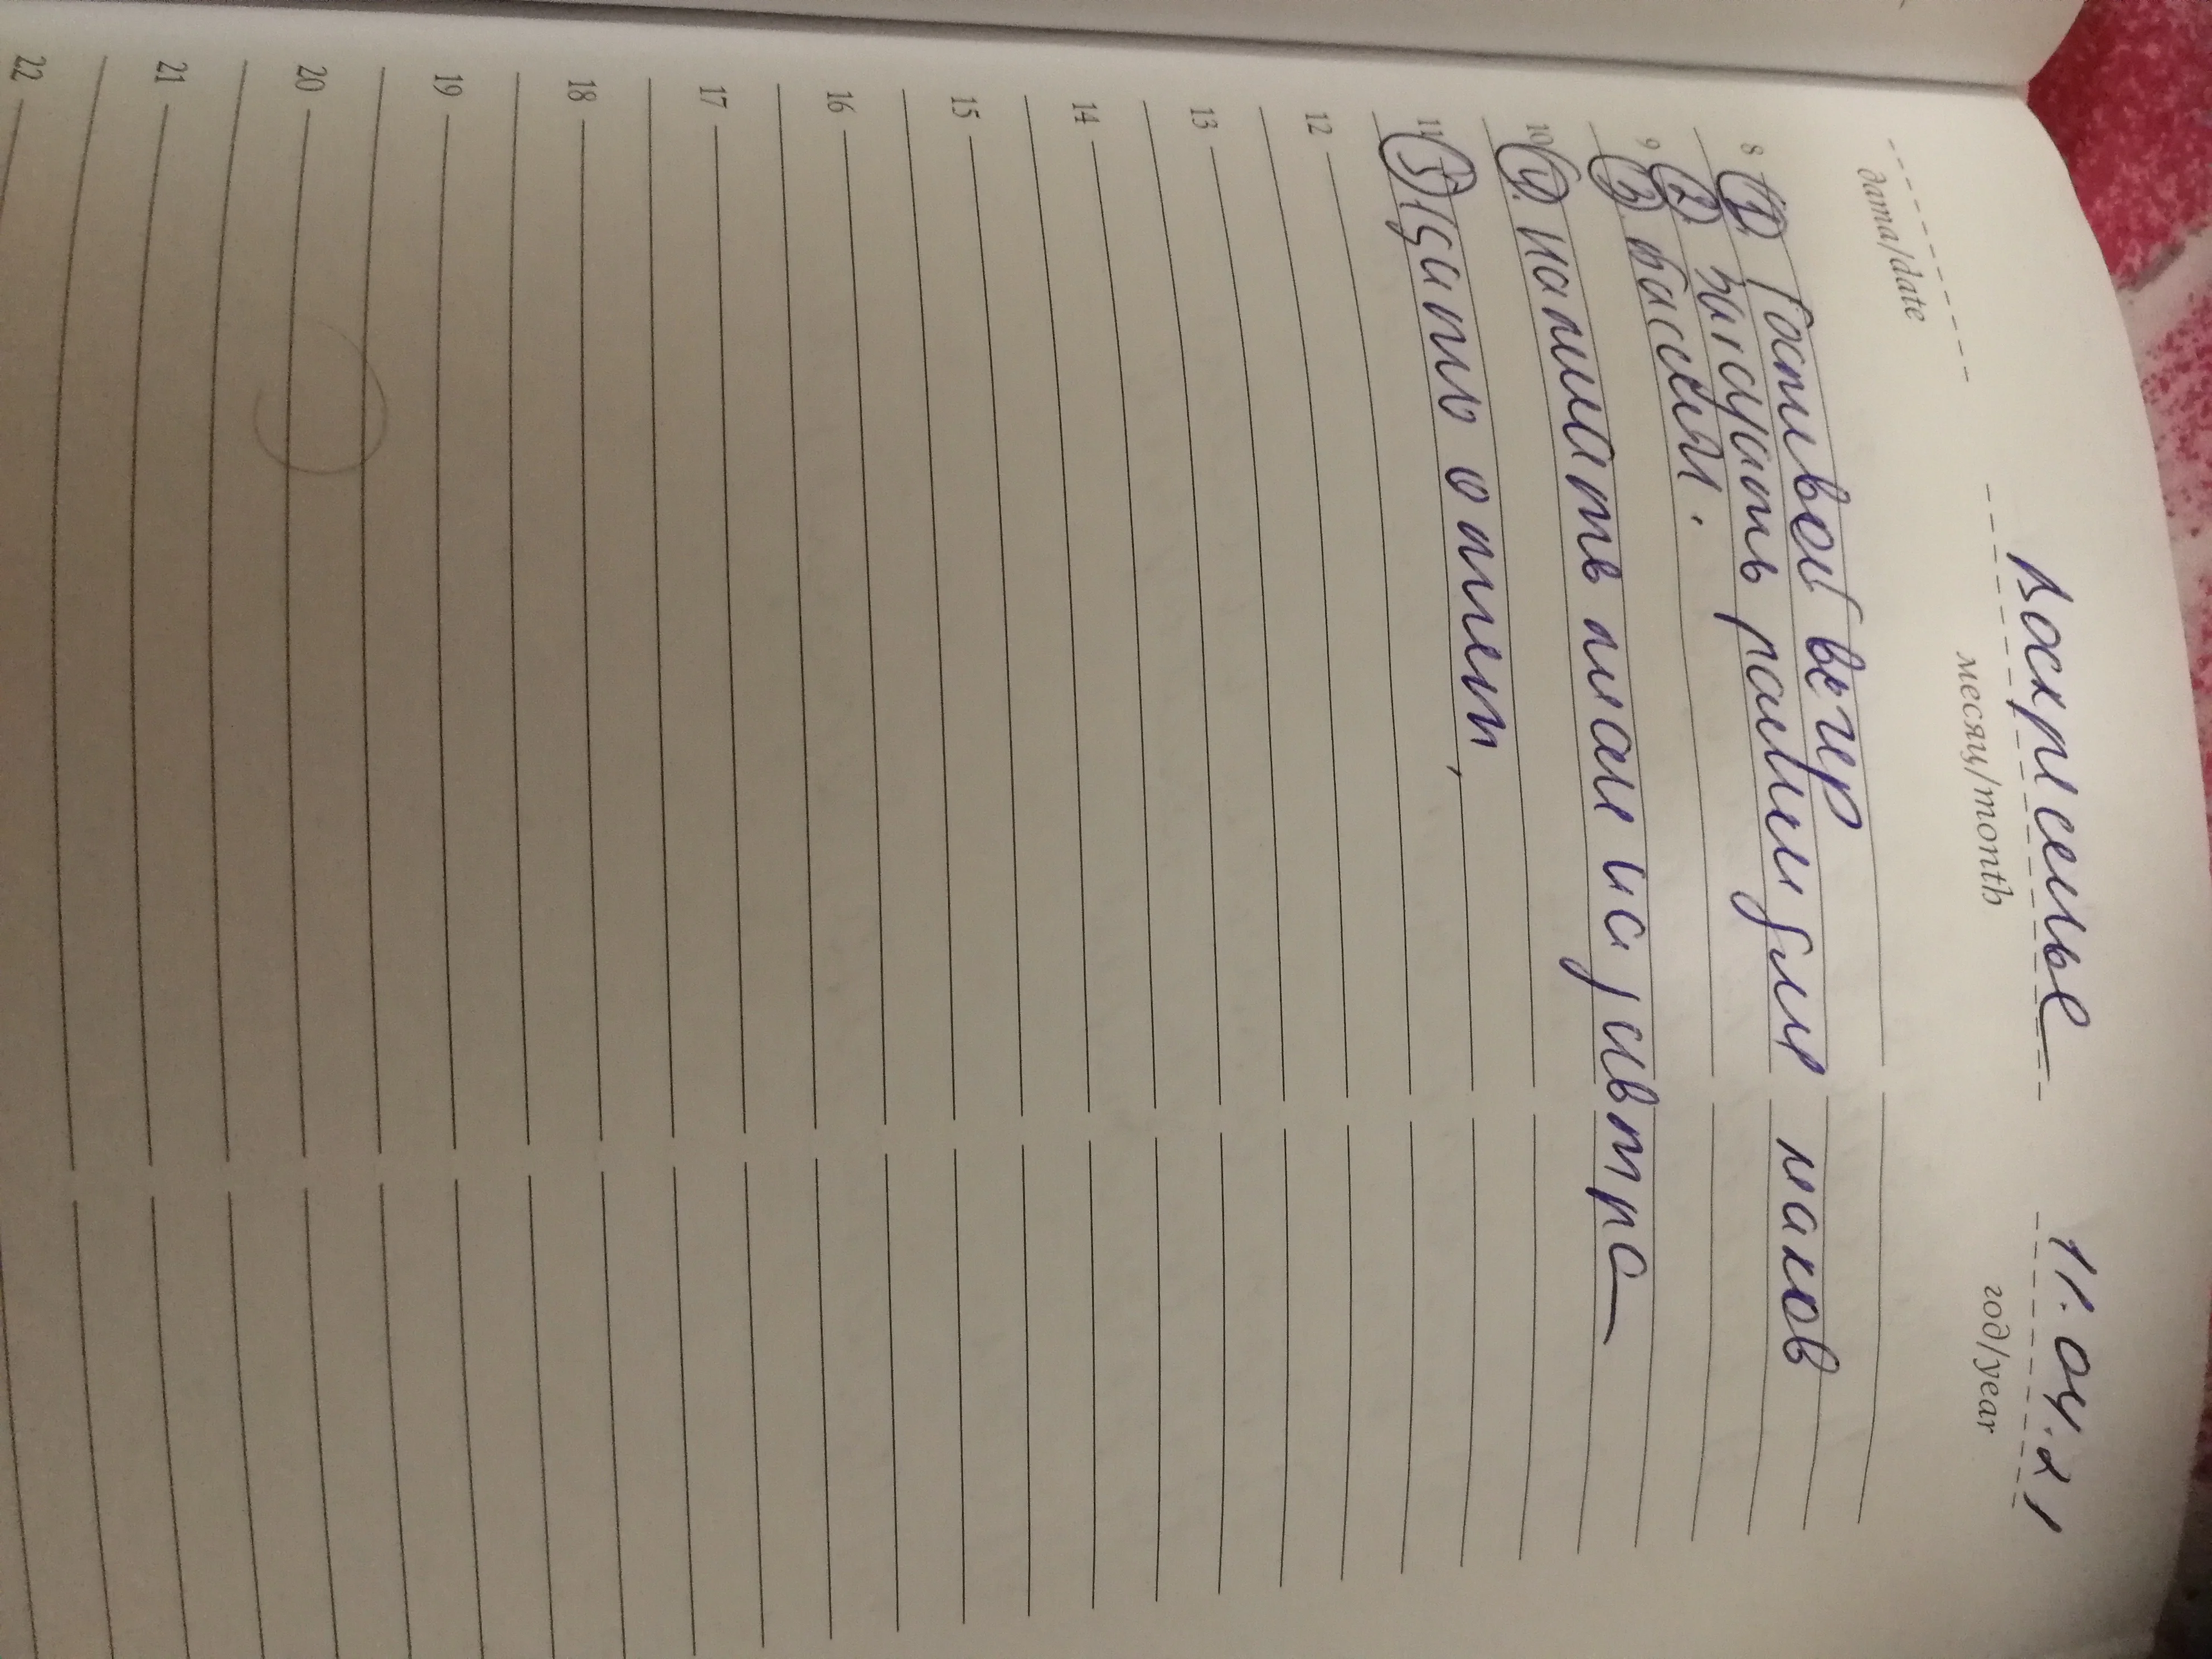 Воскресенье 11.04.21
дата/date месяц/month год/year
8 1. Гостевой вечер
2 нарисовать рамки для маков
9 3 бассейн.
10 4. Написать план на завтра
11 5 Сдать отчет,
12
13
14
15
16
17
18
19
20
21
22